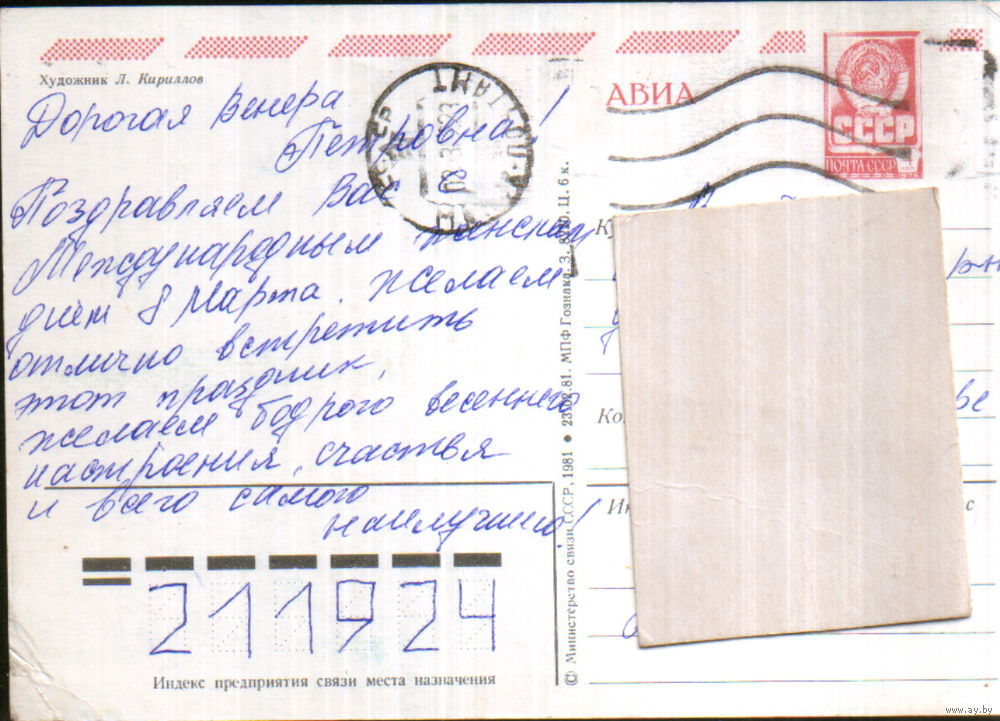 Художник Л. Кириллов
Дорогая Венера
Петровна!
Поздравляем Вас с
Международным женским
днём 8 Марта. Желаем
отлично встретить
этот праздник,
желаем бодрого весеннего
настроения, счастья
и всего самого
наилучшего!
АВИА
СССР
ПОЧТА СССР
© Министерство связи СССР, 1981 ● 23.02.81. МПФ Гознака. З. Ц. 6 к.
211924
Индекс предприятия связи места назначения
www.ay.by